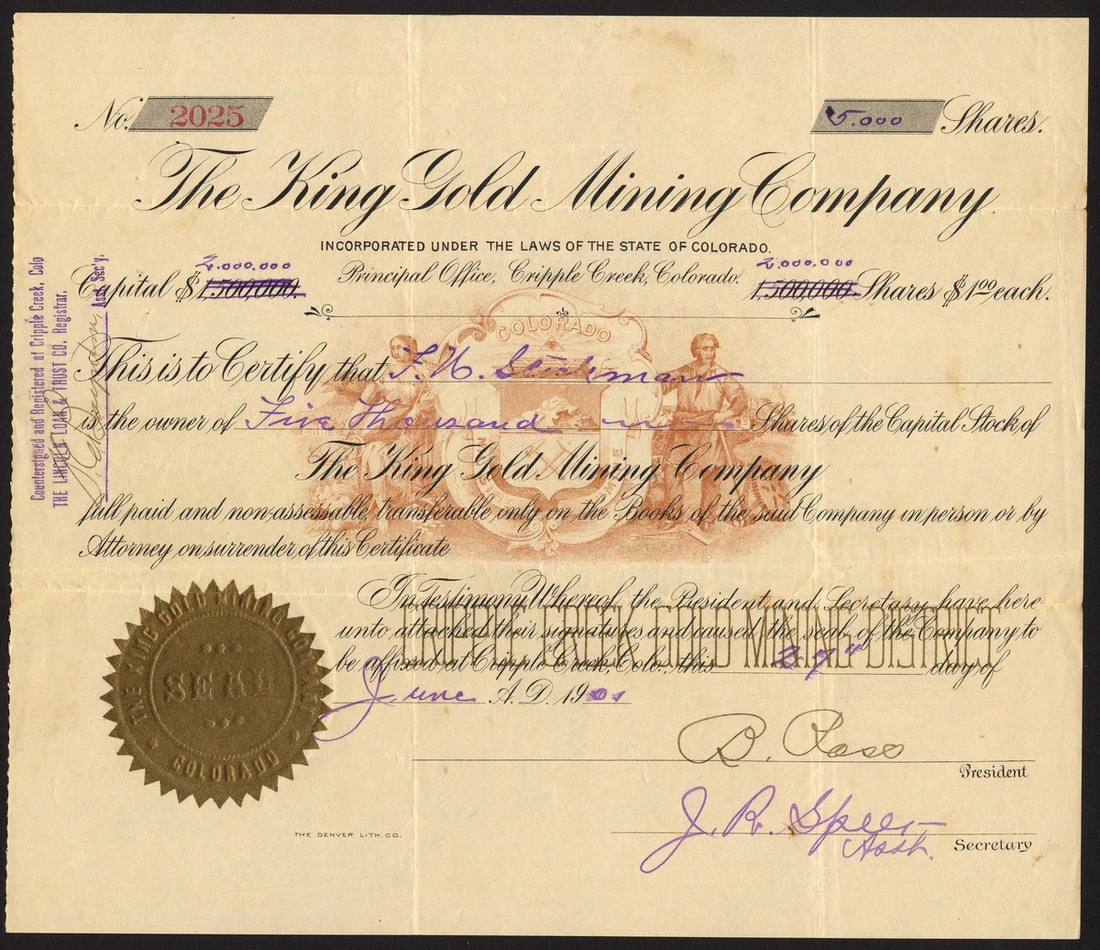 No. 2025
5.000 Shares.
The King Gold Mining Company
INCORPORATED UNDER THE LAWS OF THE STATE OF COLORADO.
Principal Office, Cripple Creek, Colorado.
Capital $ 2.000.000 1,500,000.
2.000.000 1,500,000 Shares $1.00 each.
COLORADO
This is to Certify that F. W.
is the owner of Five Thousand Shares of the Capital Stock of
The King Gold Mining Company
full paid and non-assessable, transferable only on the Books of the said Company in person or by
Attorney on surrender of this Certificate
In Testimony Whereof, the President and Secretary have here
unto attached their signatures and caused the seal of the Company to
be affixed at Cripple Creek, Colo. this 27" day of
June A.D. 1901
CRIPPLE CREEK GOLD MINING DISTRICT
B. Ross
President
J. R. Speer
Asst. Secretary
THE DENVER LITH. CO.
THE KING GOLD MINING COMPANY
SEAL
COLORADO
Countersigned and Registered at Cripple Creek, Colo
THE LINCOLN LOAN & TRUST CO. Registrar.
Asst. Sec'y.